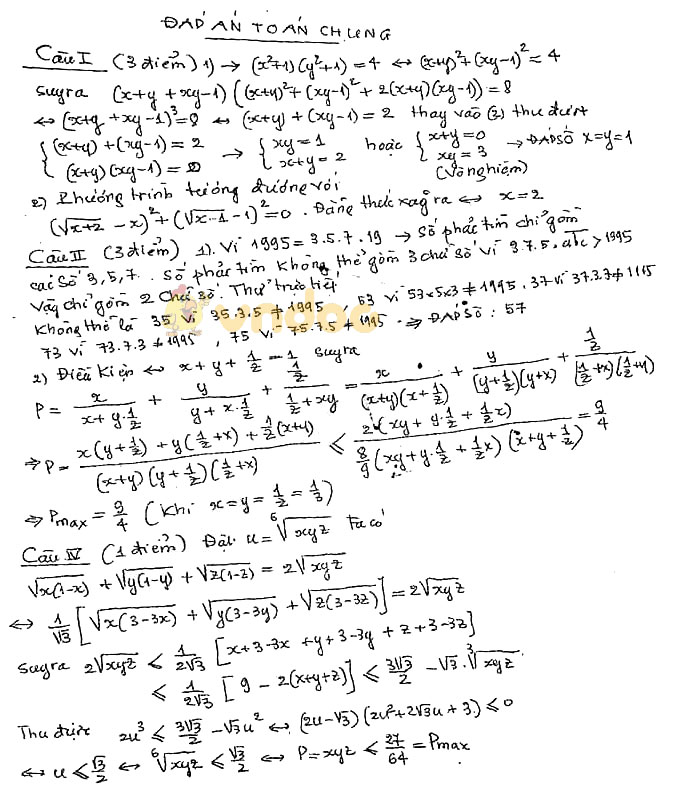 ĐÁP ÁN TOÁN CHUNG
Câu I (3 điểm) 1) → (x²+1)(y²+1)=4 ↔ (x+y)²+(xy-1)²=4
Suy ra (x+y+xy-1)((x+y)²+(xy-1)²+2(x+y)(xy-1))=8
↔ (x+y+xy-1)³=8 ↔ (x+y)+(xy-1)=2 thay vào (2) thu được
{(x+y)+(xy-1)=2 → {xy=1 hoặc {x+y=0 → ĐÁP SỐ x=y=1
(x+y)(xy-1)=0 x+y=2 xy=3
(Vô nghiệm)
2) Phương trình tương đương với
(√x+2 - x)²+(√x-1 - 1)²=0. Đẳng thức xảy ra ↔ x=2
Câu II (3 điểm) 1). Vì 1995=3.5.7.19 → số phải tìm chỉ gồm
các số 3,5,7. Số phải tìm không thể gồm 3 chữ số vì 3.7.5.abc > 1995
Vậy chỉ gồm 2 chữ số. Thử trực tiếp
Không thể là 35 vì 35.3.5 ≠ 1995, 53 vì 53×5×3 ≠ 1995, 37 vì 37.3.7 ≠ 1995
73 vì 73.7.3 ≠ 1995, 75 vì 75.7.5 ≠ 1995 ⇒ ĐÁP SỐ: 57
vndoc
2) Điều kiện ↔ x+y+1/z=1 suy ra
P = x/(x+y.1/z) + y/(y+x.1/z) + (1/z)/(1/z+xy) = x/((x+y)(x+1/z)) + y/((y+1/z)(y+x)) + (1/z)/((1/z+x)(1/z+y))
⇒ P = (x(y+1/z)+y(1/z+x)+1/z(x+y))/((x+y)(y+1/z)(1/z+x)) ≤ 2(xy+y.1/z+1/z x)/(8/9(xy+y.1/z+1/z x)(x+y+1/z)) = 9/4
⇒ Pmax = 9/4 (Khi x=y=1/z=1/3)
Câu IV (1 điểm) Đặt u=⁶√xyz Ta có
√x(1-x) + √y(1-y) + √z(1-z) = 2√xyz
↔ 1/√3 [√x(3-3x) + √y(3-3y) + √z(3-3z)] = 2√xyz
Suy ra 2√xyz ≤ 1/2√3 [x+3-3x+y+3-3y+z+3-3z]
≤ 1/2√3 [9-2(x+y+z)] ≤ 3√3/2 - √3.³√xyz
Thu được 2u³ ≤ 3√3/2 - √3u² ↔ (2u-√3)(2u²+2√3u+3) ≤ 0
↔ u ≤ √3/2 ↔ ⁶√xyz ≤ √3/2 ↔ P=xyz ≤ 27/64 = Pmax